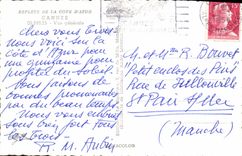 REFLETS DE LA COTE D'AZUR
CANNES
Vue générale
Chers vous trois
Nous voici sur la
côte d'Azur pour
une quinzaine pour
profiter du soleil.
Nous faisons de
bonnes promenades
par du beau temps.
Nous vous em
brassons bien fort tous
les trois.
M. et Mme R. Bonnet
Petit enclos des Pins
Rue de Jullouville
St Pair s/Mer
(Manche)